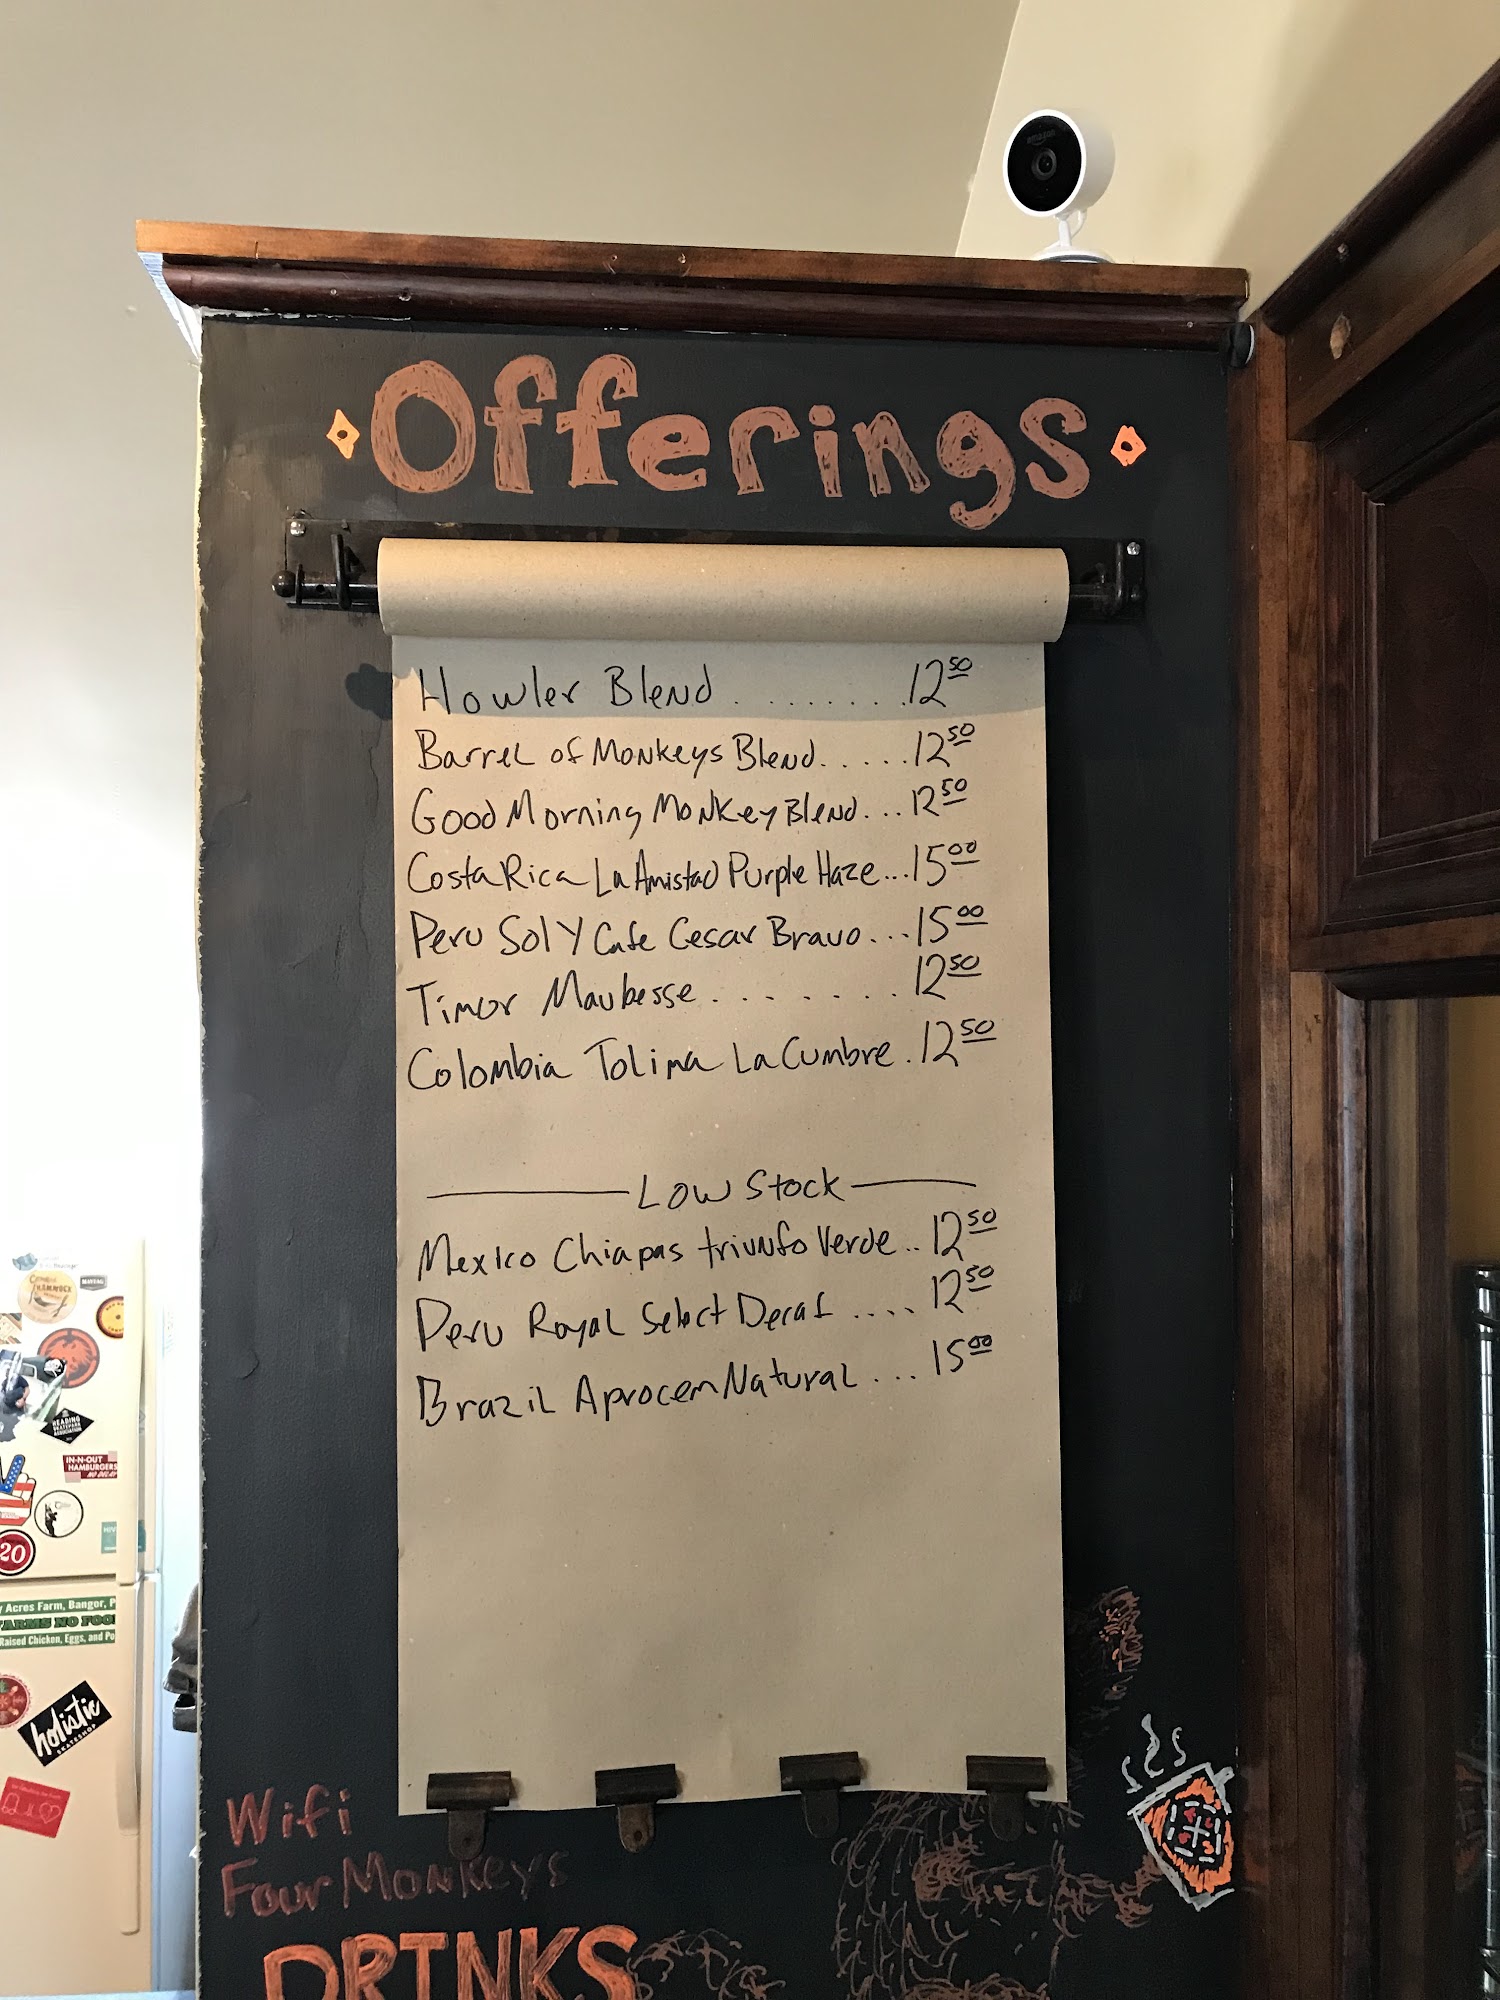 amazon
Offerings
Howler Blend ........ 12 50
Barrel of Monkeys Blend..... 12 50
Good Morning Monkey Blend... 12 50
Costa Rica La Amistad Purple Haze... 15 00
Peru Sol Y Cafe Cesar Bravo... 15 00
Timor Maubesse ........ 12 50
Colombia Tolima La Cumbre . 12 50
Low Stock
Mexico Chiapas triunfo Verde .. 12 50
Peru Royal Select Decaf .... 12 50
Brazil Aprocem Natural ... 15 00
Wifi
Four Monkeys
DRINKS
HAMMOCK
MAYTAG
READING
SKATEPARK
ASSOCIATION
IN-N-OUT
HAMBURGERS
NO DELAY
20
y Acres Farm, Bangor, P
FARMS NO FOO
Raised Chicken, Eggs, and Po
holistic
SKATESHOP